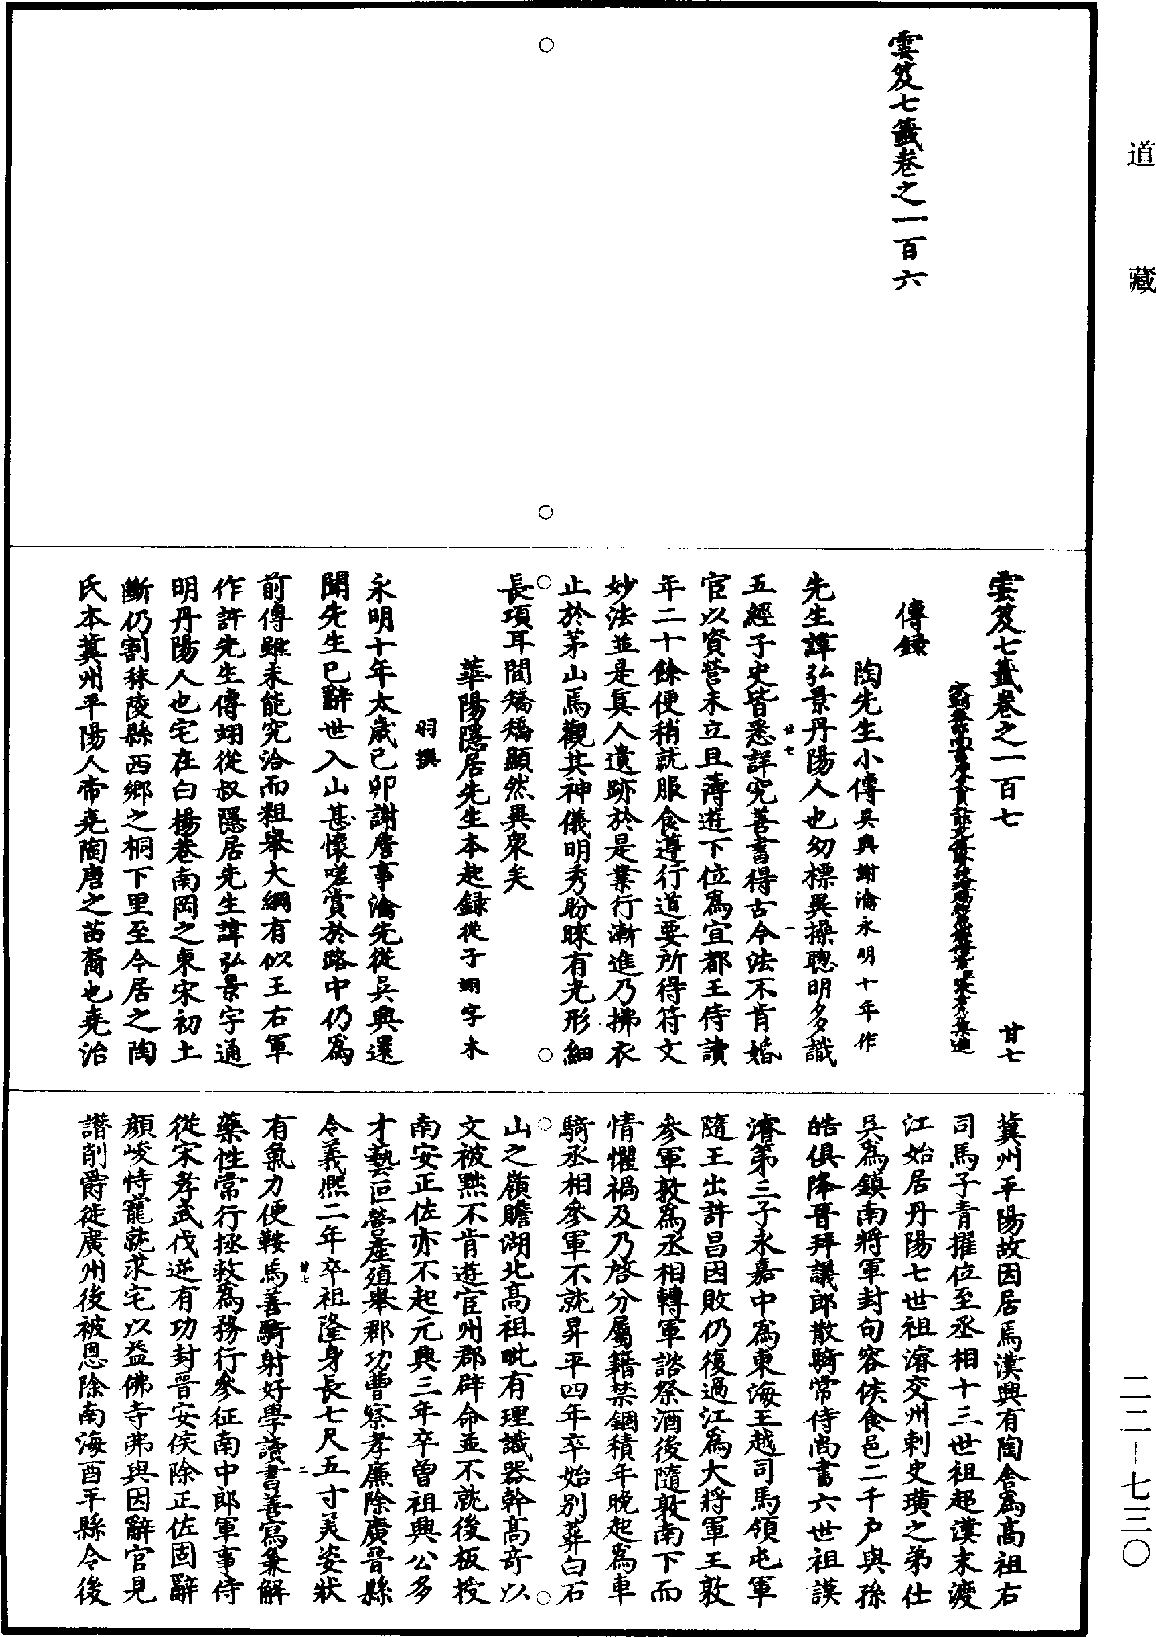 道藏
雲笈七籤卷之一百六
雲笈七籤卷之一百七 廿七
傳錄
陶先生小傳吳興謝瀹永明十年作
先生諱弘景丹陽人也幼標異操聰明多識
五經子史皆悉詳究善書得古今法不肯婚
宦以資營未立且薄遊下位為宜都王侍讀
年二十餘便稍就服食遵行道要所得符文
妙法並是真人遺跡於是業行漸進乃拂衣
止於茅山馬觀其神儀明秀盼睞有光形細
長項耳間矯矯顯然異衆矣
華陽隱居先生本起錄從子翊字木
羽撰
永明十年太歲己卯謝詹事瀹先從吳興還
聞先生已辭世入山甚懷嗟賞於路中仍為
前傳雖未能究洽而粗舉大綱有似王右軍
作許先生傳翊從叔隱居先生諱弘景字通
明丹陽人也宅在白楊巷南岡之東宋初土
斷仍割秣陵縣西鄉之桐下里至今居之陶
氏本冀州平陽人帝堯陶唐之苗裔也堯治
冀州平陽故因居焉漢興有陶舍為高祖右
司馬子青擢位至丞相十三世祖超漢末渡
江始居丹陽七世祖濬交州刺史璜之弟仕
吳為鎮南將軍封句容侯食邑二千戶與孫
皓俱降晉拜議郎散騎常侍尚書六世祖謨
濬第三子永嘉中為東海王越司馬領屯軍
隨王出許昌因敗仍復過江為大將軍王敦
參軍敦為丞相轉軍諮祭酒後隨敦南下而
情懼禍及乃啓分屬籍禁錮積年晚起為車
騎丞相參軍不就昇平四年卒始別葬白石
山之嶺瞻湖北高祖毗有理識器幹高奇以
文被黜不肯遊宦州郡辟命並不就後板授
南安正佐亦不起元興三年卒曾祖興公多
才藝叵營產殖舉郡功曹察孝廉除廣晉縣
令義熙二年卒祖隆身長七尺五寸美姿狀
有氣力便鞍馬善騎射好學讀書善寫兼解
藥性常行拯救為務行參征南中郎軍事侍
從宋孝武伐逆有功封晉安侯除正佐固辭
顏峻恃寵就求宅以益佛寺弗與因辭官見
譖削爵徙廣州後被恩除南海酉平縣令後
廿七 一
廿七 二
二二－七三〇